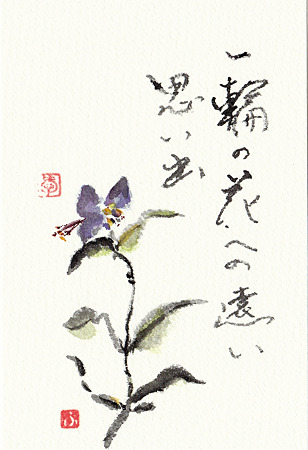 一輪の花への遠い
思い出
ふ